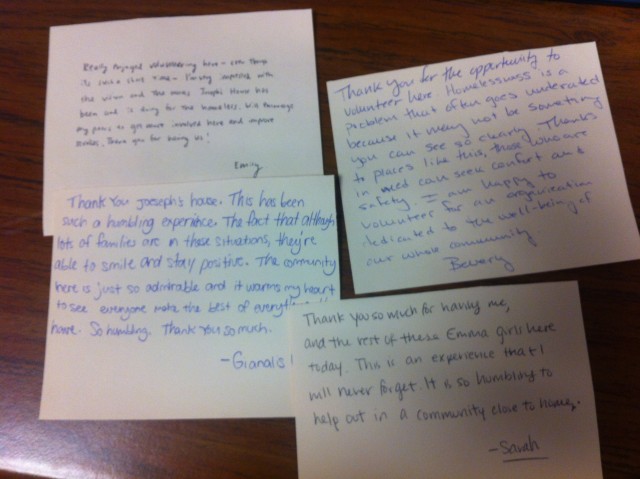 Really enjoyed volunteering here - even though
its such a short time - I'm very impressed with
the vision and the Joseph's House has
been and is doing for the homeless. Will encourage
my peers to get more involved here and
Thank you for having us!
Emily
Thank you for the opportunity to
volunteer here. Homelessness is a
problem that often goes underrated
because it may not be something
you can see so clearly. Thanks
to places like this, those who are
in need can seek comfort and
safety. I am happy to
volunteer for an organization
dedicated to the well-being of
our whole community
Beverly
Thank you Joeseph's house. This has been
such a humbling experience. The fact that although
lots of families are in these situations, they're
able to smile and stay positive. The community
here is just so admirable and it warms my heart
to see everyone make the best of
have. So humbling. Thank you so much.
-Gianalis
Thank you so much for having me,
and the rest of these Emma girls here
today. This is an experience that I
will never forget. It is so humbling to
help out in a community close to home.
-Sarah